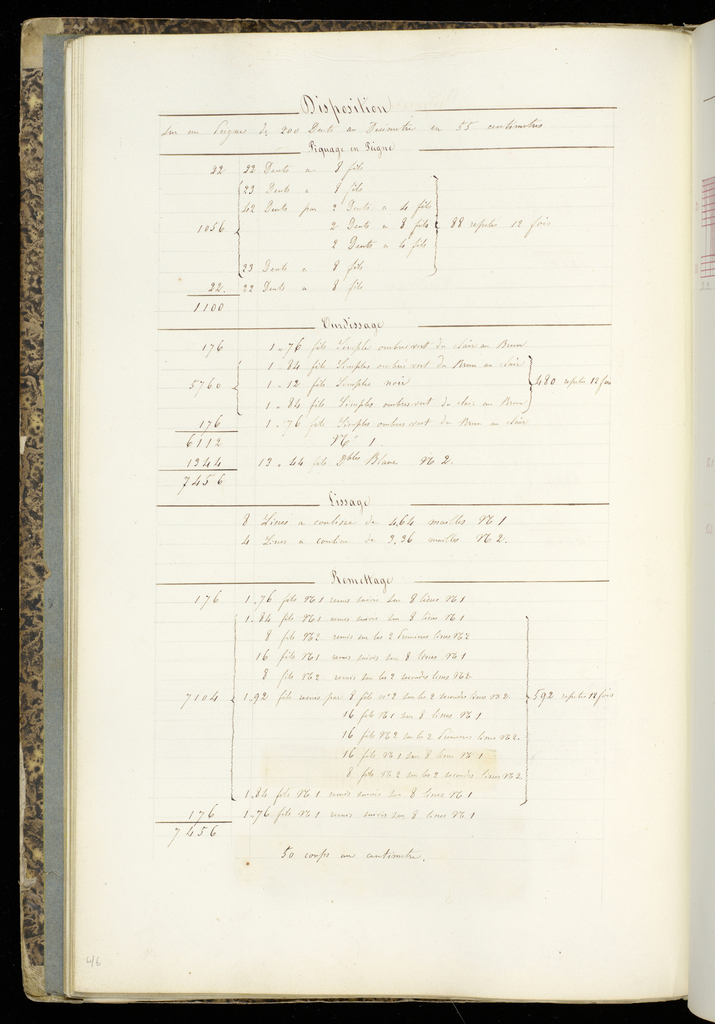 Disposition
Sur un Peigne de 200 Dents au Décimètre en 55 centimètres
Piquage en Peigne
22 22 Dents a 8 fils
23 Dents a 8 fils
42 Dents par 2 Dents a 4 fils
1056 2 Dents a 8 fils 88 repetés 12 fois
2 Dents a 4 fils
23 Dents a 8 fils
22. 22 Dents a 8 fils
1100
Ourdissage
176 1.76 fils Simples ombres vert du clair au Brun
1.84 fils Simples ombres vert du Brun au clair
5760 1.12 fils Simples noir 480 repetés 12 fois
1.84 fils Simples ombres vert du clair au Brun
176 1.76 fils Simples ombres vert du Brun au clair
6112 No 1.
1344 13.44 fils Dbles Blanc No 2.
7456
Lissage
8 Lisses a coulisse de 4.64 mailles No 1
4 Lisses a coulisse de 3.36 mailles No 2.
Remettage
176 1.76 fils No 1 remis suivis sur 8 lisses No 1
1.84 fils No 1 remis suivis sur 8 lisses No 1
8 fils No 2 remis sur les 2 premieres lisses No 2
16 fils No 1 remis suivis sur 8 lisses No 1
8 fils No 2 remis sur les 2 secondes lisses No 2
7104 1.92 fils remis par 8 fils No 2 sur les 2 secondes lisses No 2. 592 repetés 12 fois
16 fils No 1 sur 8 lisses No 1
16 fils No 2 sur les 2 premieres lisses No 2.
16 fils No 1 sur 8 lisses No 1
8 fils No 2 sur les 2 secondes lisses No 2.
1.84 fils No 1 remis suivis sur 8 lisses No 1
176 1.76 fils No 1 remis suivis sur 8 lisses No 1
7456
50 coups au centimètre.
46
22